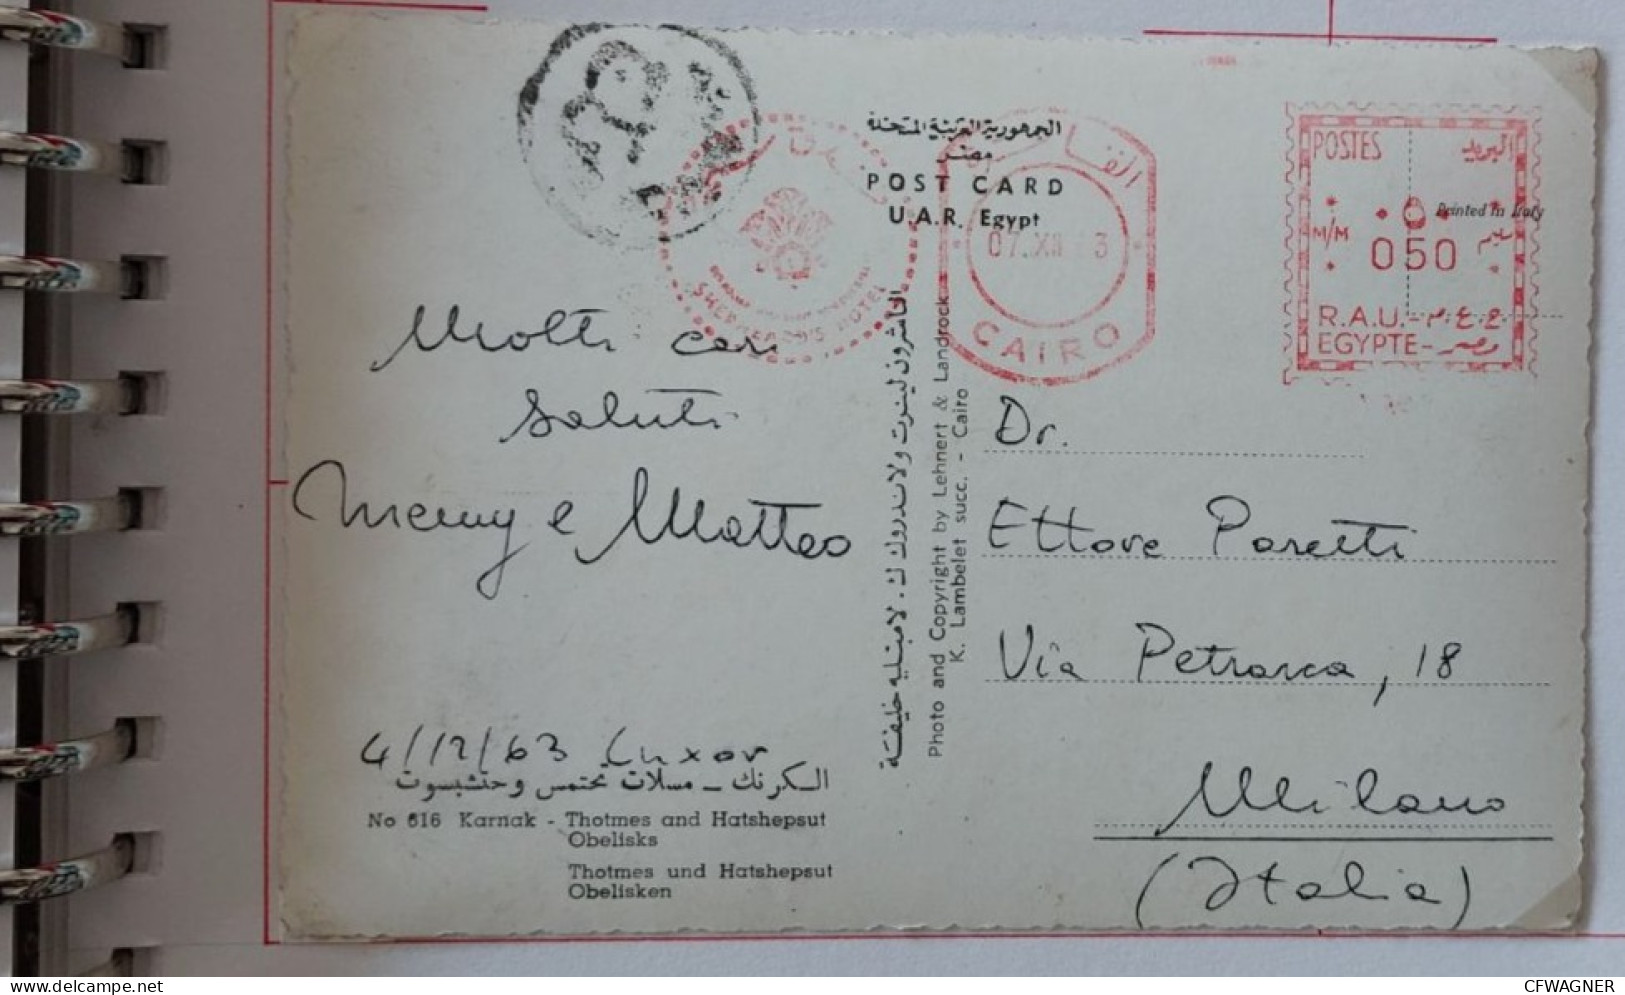 الجمهورية العربية المتحدة
مصر
POST CARD
U.A.R. Egypt
SHEPHEARD'S HOTEL
القاهرة
07.XII 3
CAIRO
POSTES البريد
Printed in Italy
M/M ٠٥٠ مليم
050
R.A.U.- ج.ع.م
EGYPTE - مصر
Molti cari
saluti
Memy e Matteo
4/12/63 Luxor
الكرنك ــ مسلات تحتمس وحتشبسوت
No 616 Karnak - Thotmes and Hatshepsut
Obelisks
Thotmes und Hatshepsut
Obelisken
الناشرون لينرت ولاندروك ك. لامبليه خليفة
Photo and Copyright by Lehnert & Landrock
K. Lambelet succ. - Cairo
Dr.
Ettore Paretti
Via Petrarca, 18
Milano
(Italia)
CFWAGNER
https://www.delcampe.net